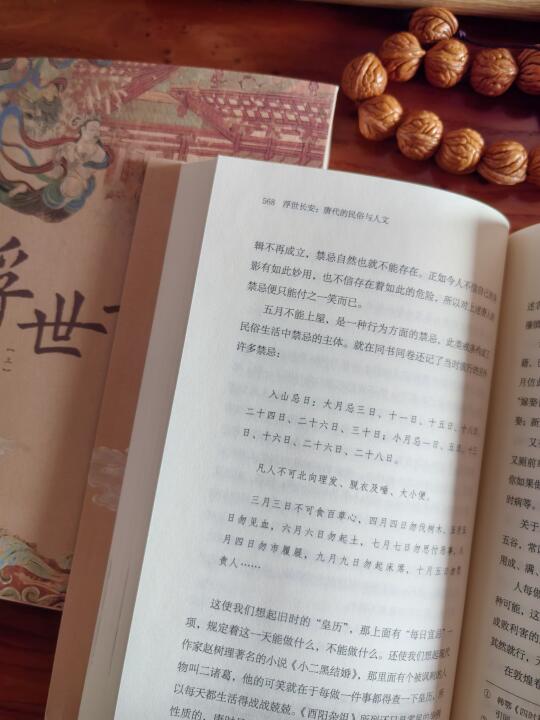 浮世
【上】
568 浮世长安：唐代的民俗与人文
辑不再成立，禁忌自然也就不能存在。正如今人不信自己的身
影有如此妙用，也不信存在着如此的危险，所以对上述唐人的
禁忌便只能付之一笑而已。
五月不能上屋，是一种行为方面的禁忌，此类戒律构成了
民俗生活中禁忌的主体。就在同书同卷还记了当时流行的另外
许多禁忌：
入山忌日：大月忌三日、十一日、十五日、十八日、
二十四日、二十六日、三十日；小月忌一日、五日、十三
日、十六日、二十六日、二十八日。
凡人不可北向理发、脱衣及唾、大小便。
三月三日不可食百草心，四月四日勿伐树木，五月五
日勿见血，六月六日勿起土，七月七日勿思忖恶事，八
月四日勿市履屣，九月九日勿起床席，十月五日勿罚
责人……
这使我们想起旧时的“皇历”，那上面有“每日宜忌”一
项，规定着这一天能做什么，不能做什么。还使我们想起现代
作家赵树理著名的小说《小二黑结婚》，那里面有个被讽刺的人
物叫二诸葛，他的可笑就在于每做一件事都得查一下皇历，所
以每天都生活得战战兢兢。《酉阳杂俎》所列还只是常见的
性质的，唐时
述者
藉、
月信
“嫁娶
娶；新
又
又厕前
你如果
时病等。
关于
五谷，常
用成、满、
人每做
种可能，这
成败利害的
其然就行，天
在敦煌卷
① 韩鄂《四时
引